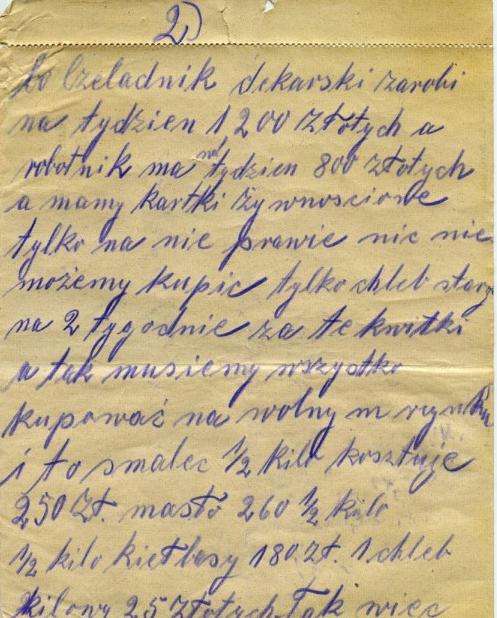 2)
bo Czeladnik dekarski zarobi
na tydzien 1200 złotych a
robotnik ma na tydzien 800 złotych
a mamy kartki żywnosciowe
tylko na nie prawie nic nie
możemy kupic tylko chleb starczy
na 2 tygodnie za te kwitki
a tak musiemy wszystko
kupować na wolnym rynku
i to smalec 1/2 kilo kosztuje
250 Zł. masło 260 1/2 kilo
1/2 kilo kiełbasy 180 zł. 1 chleb
kilowy 25 złotych tak wiec